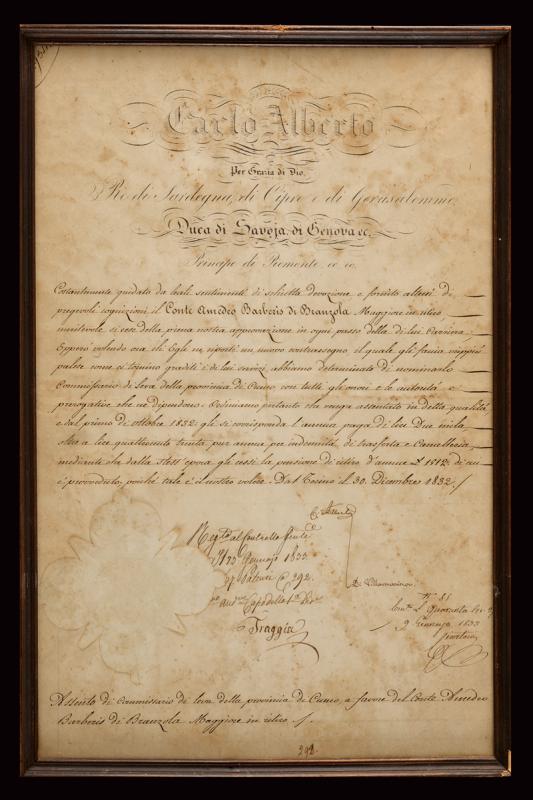 Carlo Alberto
Per Grazia di Dio,
Re di Sardegna, di Cipro e di Gerusalemme,
Duca di Savoja, di Genova ec.
Principe di Piemonte, ec. ec.
Costantemente guidato da leali sentimenti di schietta devozione, e fornito altresì di
pregevoli cognizioni il Conte Amedeo Barberis di Branzola Maggiore in ritiro
meritevole si rese della piena nostra approvazione in ogni passo della di lui carriera.
Epperò volendo ora ch' Egli ne riporti un nuovo contrassegno il quale gli faccia vieppiù
palese come ci tornino graditi i di lui servizi, abbiamo determinato di nominarlo
Commissario di Leva della provincia di Cuneo con tutti gli onori e le autorità e
prerogative che ne dipendono. Ordiniamo pertanto che venga assentato in detta qualità,
e dal primo di ottobre 1832 gli si corrisponda l'annua paga di lire Due mila,
oltre a lire quattrocento trenta, pur annue per indennità di trasferta e Cancelleria,
mediante che dalla stess' epoca gli cessi la pensione di ritiro d'annue L 1812 di cui
è provveduto, poichè tale è il nostro volere. Dat. Torino il 30. Dicembre 1832.
C. Alberto
Reg.to al Controllo Gen.le
1833
292.
Di Villamarina
N° 88
9 Gennajo 1833
Traggia
Assento di Commissario di leva della provincia di Cuneo, a favore del Conte Amedeo
Barberis di Branzola Maggiore in ritiro.
292.